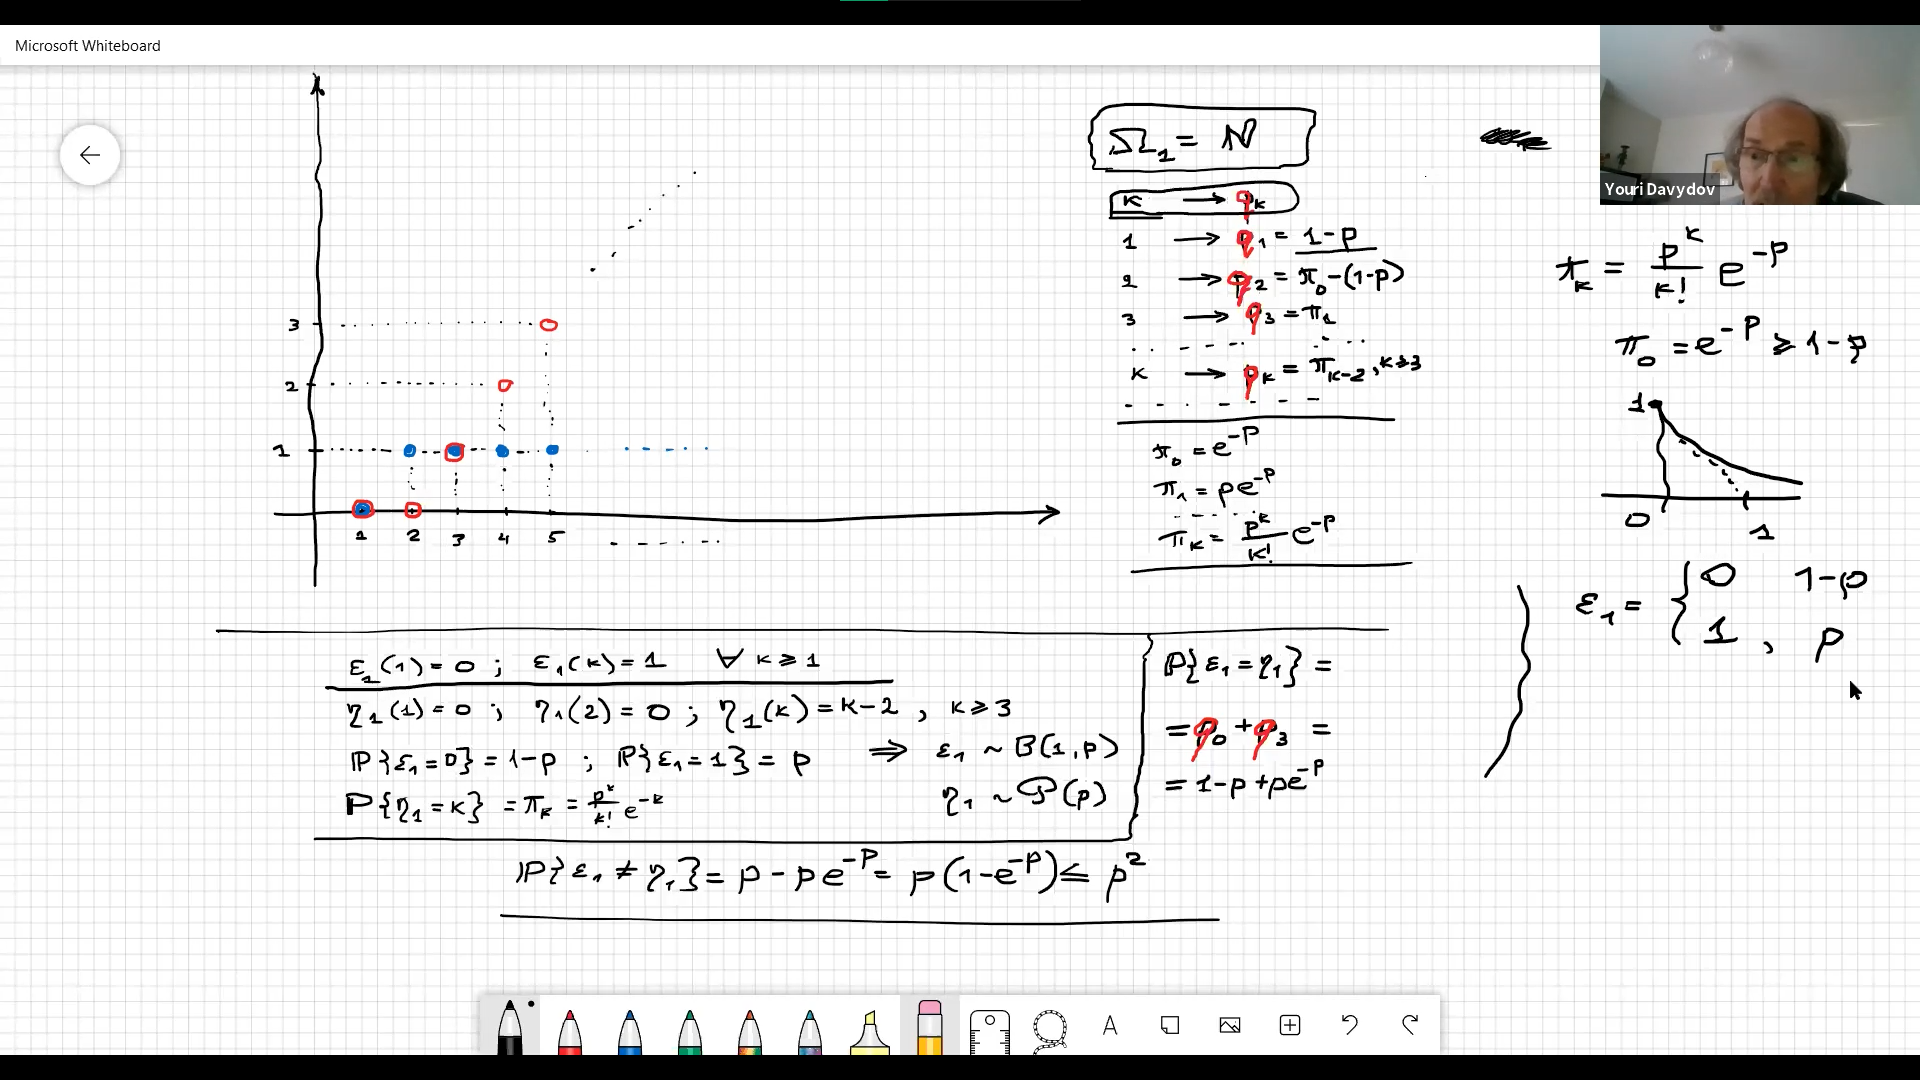 Microsoft Whiteboard
Youri Davydov
3
2
1
1 2 3 4 5
Ω₁ = ℕ
k → qₖ
1 → q₁ = 1-p
2 → q₂ = π₀-(1-p)
3 → q₃ = π₁
k → pₖ = πₖ₋₂, k≥3
π₀ = e^{-p}
π₁ = pe^{-p}
πₖ = p^k/k! e^{-p}
πₖ = p^k/k! e^{-p}
π₀ = e^{-p} ≥ 1-p
1
0 1
ε₁ = { 0 1-p
1 , p
ε₁(1) = 0 ; ε₁(k) = 1 ∀ k ≥ 1
η₁(1) = 0 ; η₁(2) = 0 ; η₁(k) = k-2 , k ≥ 3
ℙ{ε₁=0} = 1-p ; ℙ{ε₁=1} = p ⇒ ε₁ ~ B(1,p)
ℙ{η₁=k} = πₖ = p^k/k! e^{-k} η₁ ~ 𝒫(p)
ℙ{ε₁ = η₁} =
= q₀ + q₃ =
= 1-p + pe^{-p}
ℙ{ε₁ ≠ η₁} = p - pe^{-p} = p(1-e^{-p}) ≤ p²
A